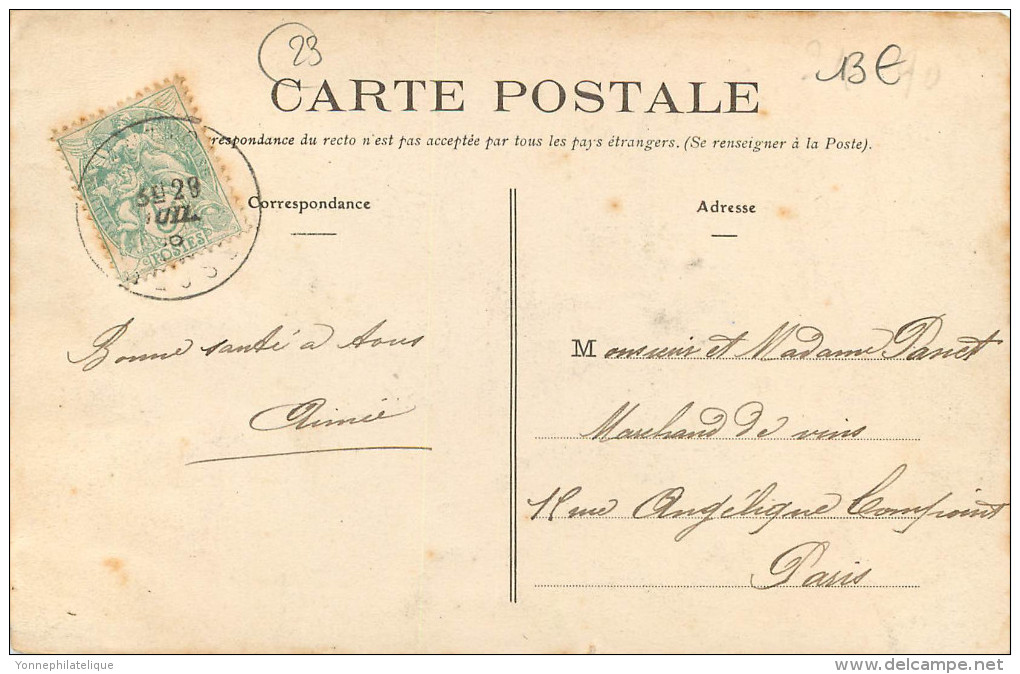 23
13€
CARTE POSTALE
respondance du recto n'est pas acceptée par tous les pays étrangers. (Se renseigner à la Poste).
28
JUIL.
POSTES
Correspondance
Adresse
Bonne santé à tous
Aimée
Monsieur et Madame Panet
Marchand de vins
Rue Angélique Compoint
Paris
Yonnephilatelique
www.delcampe.net